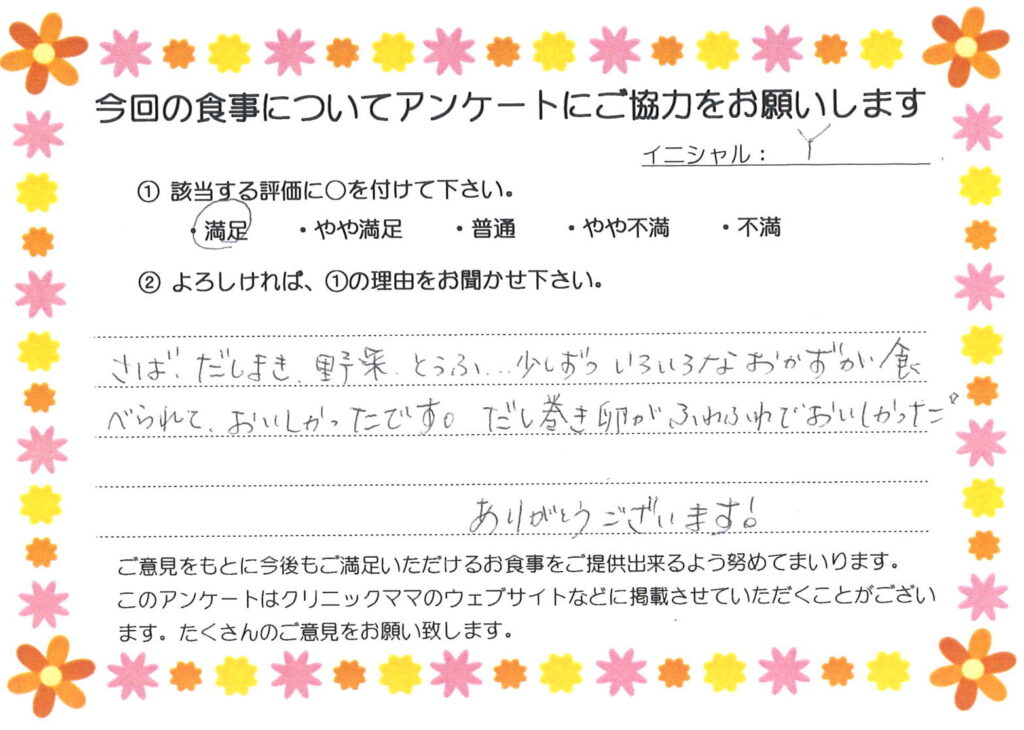 今回の食事についてアンケートにご協力をお願いします
イニシャル： Y
① 該当する評価に○を付けて下さい。
・満足 ・やや満足 ・普通 ・やや不満 ・不満
② よろしければ、①の理由をお聞かせ下さい。
さば、だしまき、野菜、とうふ…少しずついろいろなおかずが食
べられて、おいしかったです。だし巻き卵がふわふわでおいしかった。
ありがとうございます!
ご意見をもとに今後もご満足いただけるお食事をご提供出来るよう努めてまいります。
このアンケートはクリニックママのウェブサイトなどに掲載させていただくことがござい
ます。たくさんのご意見をお願い致します。